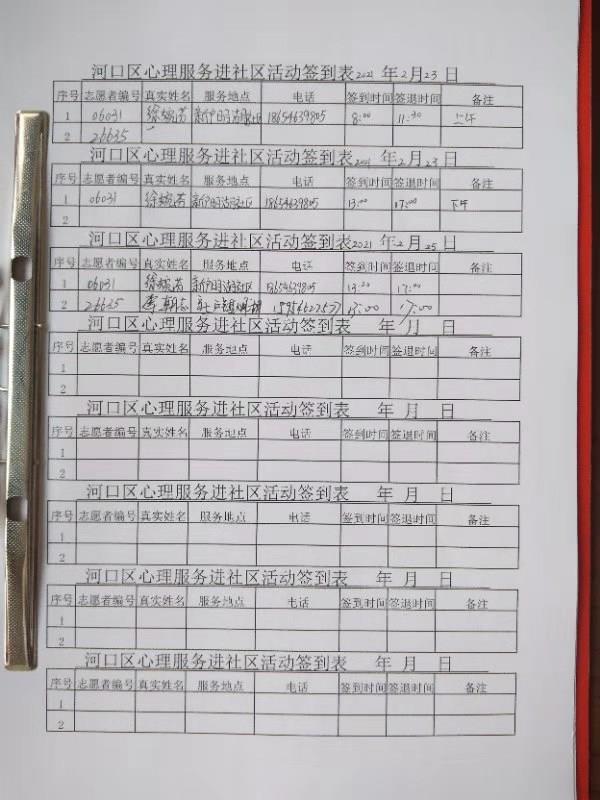 河口区心理服务进社区活动签到表2021 年2月23 日
序号 志愿者编号 真实姓名 服务地点 电话 签到时间 签退时间 备注
1 06031 18654639805 8:00 11:30 上午
2 26635
河口区心理服务进社区活动签到表2021 年2月23 日
序号 志愿者编号 真实姓名 服务地点 电话 签到时间 签退时间 备注
1 06031 18654639805 13:00 17:00 下午
2
河口区心理服务进社区活动签到表2021 年2月25 日
序号 志愿者编号 真实姓名 服务地点 电话 签到时间 签退时间 备注
1 06031 18654639805 17:00
2 26635 17:00
河口区心理服务进社区活动签到表 年 月 日
序号 志愿者编号 真实姓名 服务地点 电话 签到时间 签退时间 备注
1
2
河口区心理服务进社区活动签到表 年 月 日
序号 志愿者编号 真实姓名 服务地点 电话 签到时间 签退时间 备注
1
2
河口区心理服务进社区活动签到表 年 月 日
序号 志愿者编号 真实姓名 服务地点 电话 签到时间 签退时间 备注
1
2
河口区心理服务进社区活动签到表 年 月 日
序号 志愿者编号 真实姓名 服务地点 电话 签到时间 签退时间 备注
1
2
河口区心理服务进社区活动签到表 年 月 日
序号 志愿者编号 真实姓名 服务地点 电话 签到时间 签退时间 备注
1
2